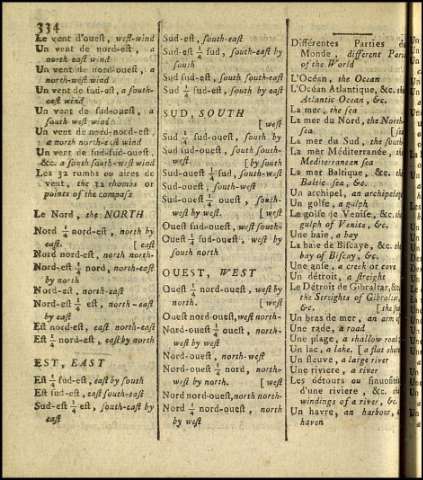 334
Le vent d'ouest, west-wind
Un vent de nord-est, a
north-east wind
Un vent de nord-ouest, a
north-west wind
Un vent de sud-est, a south-
east wind
Un vent de sud-ouest, a
south west wind
Un vent de nord-nord-est,
a north north-east wind
Un vent de sud-sud-ouest,
&c. a south south-west wind
Les 32 rumbs ou aires de
vent, the 32 rhombs or
points of the compass
Le Nord, the NORTH
Nord ¼ nord-est, north by
east. [ east
Nord nord-est, north north-
Nord-est ¼ nord, north-east
by north
Nord-est, north-east
Nord-est ¼ est, north-east
by east
Est nord-est, east north-east
Est ¼ nord-est, east by north
EST, EAST
Est ¼ sud-est, east by south
Est sud-est, east south-east
Sud-est ¼ est, south-east by
east
Sud-est, south-east
Sud-est ¼ sud, south-east by
south
Sud sud-est, south south-east
Sud ¼ sud-est, south by east
SUD, SOUTH
[ west
Sud ¼ sud-ouest, south by
Sud sud-ouest, south south-
west [ by south
Sud-ouest ¼ sud, south-west
Sud-ouest, south-west
Sud-ouest ¼ ouest, south-
west by west. [ west
Ouest sud-ouest, west south-
Ouest ¼ sud-ouest, west by
south north
OUEST, WEST
Ouest ¼ nord-ouest, west by
north. [ west
Ouest nord-ouest, west north-
Nord-ouest ¼ ouest, north-
west by west
Nord-ouest, north-west
Nord-ouest ¼ nord, north-
west by north. [ west
Nord nord-ouest, north north-
Nord ¼ nord-ouest, north
by west
Différentes Parties d
Monde, different Par
of the World
L'Océan, the Ocean
L'Océan Atlantique, &c. the
Atlantic Ocean, &c.
La mer, the sea
La mer du Nord, the North
sea [ se
La mer du Sud, the south
La mer Méditerranée, the
Mediterranean sea
La mer Baltique, &c. the
Baltic-sea, &c.
Un archipel, an archipelago
Un golfe, a gulph
Le golfe de Venise, &c. the
gulph of Venice, &c.
Une baie, a bay
La baie de Biscaye, &c. the
bay of Biscay, &c.
Une anse, a creek or cove
Un détroit, a streight
Le Détroit de Gibraltar, &c.
the Streights of Gibraltar,
&c.
Un bras de mer, an arm of
Une rade, a road
Une plage, a shallow road
Un lac, a lake. [ a flat shore
Un fleuve, a large river
Une riviere, a river
Les détours ou sinuosités
d'une riviere, &c. the
windings of a river, &c.
Un havre, an harbour,
haven